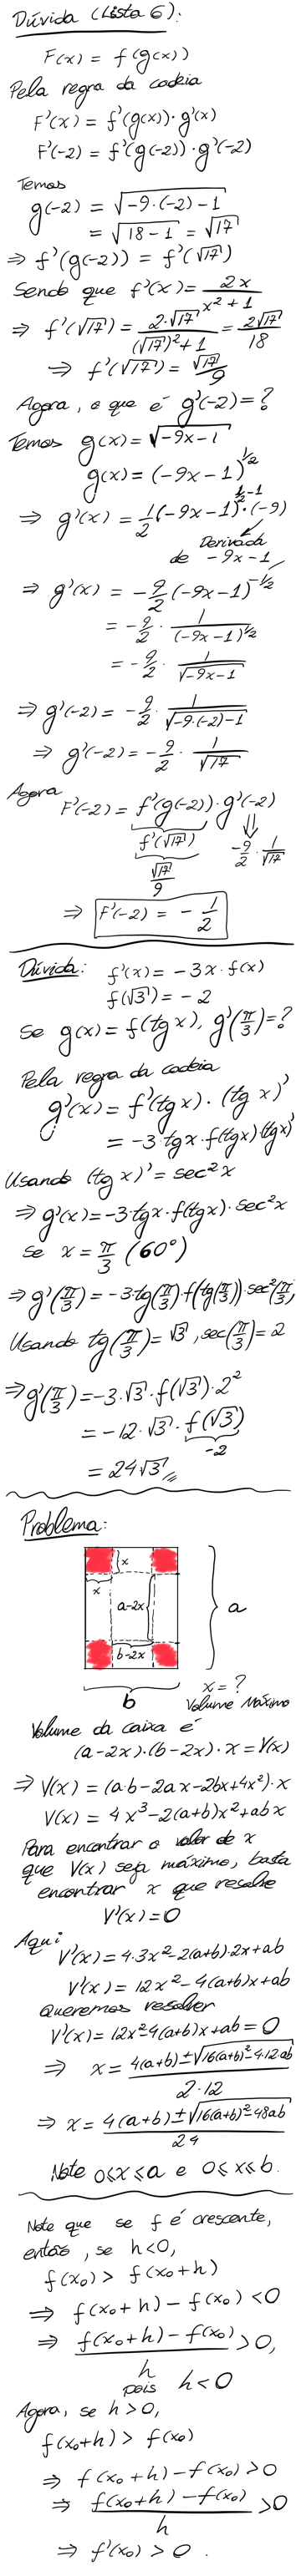 Dúvida (Lista 6):
F(x) = f(g(x))
Pela regra da cadeia
F'(x) = f'(g(x))·g'(x)
F'(-2) = f'(g(-2))·g'(-2)
Temos
g(-2) = √(-9·(-2)-1)
= √(18-1) = √17
⇒ f'(g(-2)) = f'(√17)
Sendo que f'(x) = 2x/(x²+1)
⇒ f'(√17) = 2·√17/((√17)²+1) = 2√17/18
⇒ f'(√17) = √17/9
Agora, o que é g'(-2)=?
Temos g(x) = √(-9x-1)
g(x) = (-9x-1)^(1/2)
⇒ g'(x) = 1/2(-9x-1)^(1/2-1)·(-9)
Derivada
de -9x-1
⇒ g'(x) = -9/2 (-9x-1)^(-1/2)
= -9/2 · 1/(-9x-1)^(1/2)
= -9/2 · 1/√(-9x-1)
⇒ g'(-2) = -9/2 · 1/√(-9·(-2)-1)
⇒ g'(-2) = -9/2 · 1/√17
Agora
F'(-2) = f'(g(-2))·g'(-2)
f'(√17) ⇓
√17/9 -9/2 · 1/√17
⇒ F'(-2) = -1/2
Dúvida: f'(x) = -3x·f(x)
f(√3) = -2
Se g(x) = f(tg x), g'(π/3)=?
Pela regra da cadeia
g'(x) = f'(tg x)·(tg x)'
= -3·tg x·f(tg x)·(tg x)'
Usando (tg x)' = sec²x
⇒ g'(x) = -3·tg x·f(tg x)·sec²x
Se x = π/3 (60°)
⇒ g'(π/3) = -3·tg(π/3)·f(tg(π/3))·sec²(π/3)
Usando tg(π/3) = √3, sec(π/3) = 2
⇒ g'(π/3) = -3·√3·f(√3)·2²
= -12·√3·f(√3)
-2
= 24√3
Problema:
x
x
a-2x
a
b-2x
b
x = ?
Volume Máximo
Volume da caixa é
(a-2x)·(b-2x)·x = V(x)
⇒ V(x) = (a·b-2ax-2bx+4x²)·x
V(x) = 4x³-2(a+b)x²+abx
Para encontrar o valor de x
que V(x) seja máximo, basta
encontrar x que resolve
V'(x) = 0
Aqui
V'(x) = 4·3x²-2(a+b)·2x+ab
V'(x) = 12x²-4(a+b)x+ab
Queremos resolver
V'(x) = 12x²-4(a+b)x+ab = 0
⇒ x = (4(a+b)±√(16(a+b)²-4·12ab))/(2·12)
⇒ x = (4(a+b)±√(16(a+b)²-48ab))/24
Note 0≤x≤a e 0≤x≤b.
Note que se f é crescente,
então, se h<0,
f(x₀) > f(x₀+h)
⇒ f(x₀+h) - f(x₀) < 0
⇒ (f(x₀+h) - f(x₀))/h > 0,
pois h<0
Agora, se h>0,
f(x₀+h) > f(x₀)
⇒ f(x₀+h) - f(x₀) > 0
⇒ (f(x₀+h) - f(x₀))/h > 0
⇒ f'(x₀) > 0.